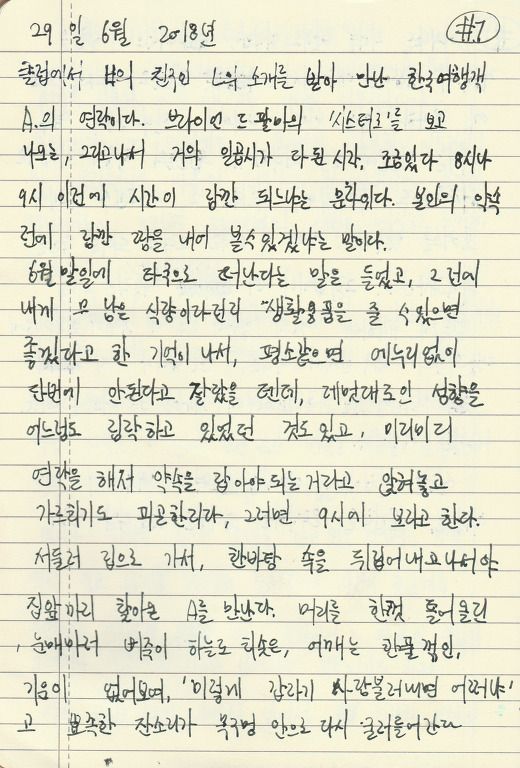 29일 6월 2018년 #1
클럽에서 B의 집주인 L의 소개를 받아 만난 한국여행객
A.의 연락이다. 브라이언 드 팔마의 '시스터즈'를 보고
나오는, 그리고나서 거의 일곱시가 다 된 시각, 조금있다 8시나
9시 이전에 시간이 잠깐 되느냐는 문자이다. 본인의 약속
전에 잠깐 짬을 내어 볼 수 있겠냐는 말이다.
6월말일에 타국으로 떠난다는 말을 들었고, 그 전에
내게 또 남은 식량이라던지 생활용품을 줄 수 있으면
좋겠다고 한 기억이 나서, 평소같으면 에누리없이
단번에 안된다고 잘랐을 텐데, 제멋대로인 성향을
어느정도 짐작하고 있었던 것도 있고, 미리미리
연락을 해서 약속을 잡아야 되는거라고 앉혀놓고
가르치기도 피곤한지라, 그러면 9시에 보라고 한다.
서둘러 집으로 가서, 한바탕 속을 뒤집어내고나서야
집앞까지 찾아온 A를 만난다. 머리를 한껏 틀어올린
, 눈매마저 삐죽이 하늘로 치솟은, 어깨는 한풀 꺾인,
기운이 없어보여, '이렇게 갑자기 사람불러내면 어쩌냐'
고 뾰족한 잔소리가 목구멍 안으로 다시 굴러들어간다